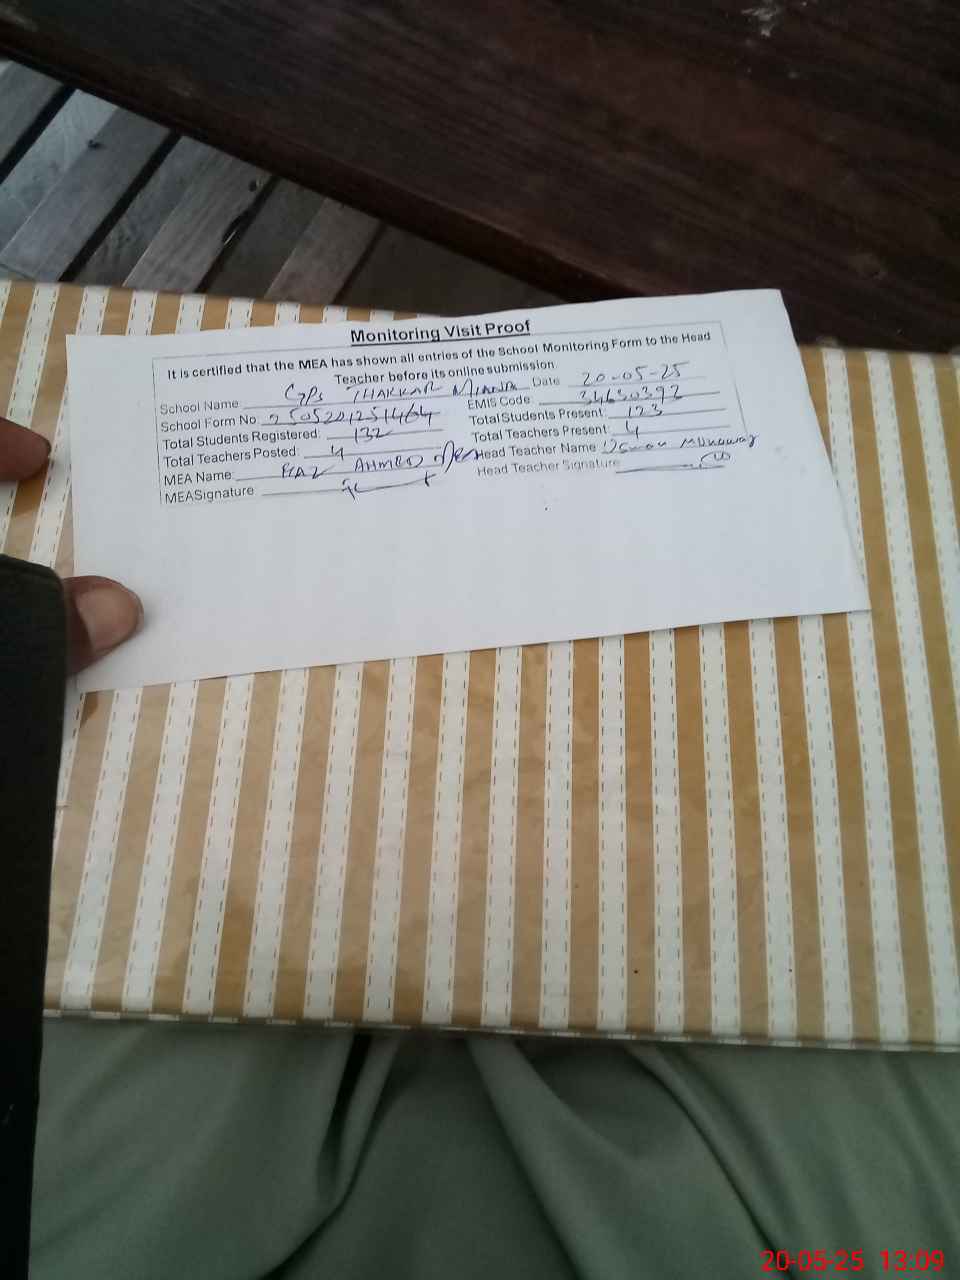 Monitoring Visit Proof
It is certified that the MEA has shown all entries of the School Monitoring Form to the Head
Teacher before its online submission
School Name: GPS THAKKAR MIANA Date 20-05-25
School Form No: 2505201251464 EMIS Code: 34650393
Total Students Registered: 132 Total Students Present: 123
Total Teachers Posted: 4 Total Teachers Present: 4
MEA Name: AHMED Head Teacher Name Usman Munawar
MEA Signature Head Teacher Signature
20-05-25 13:09